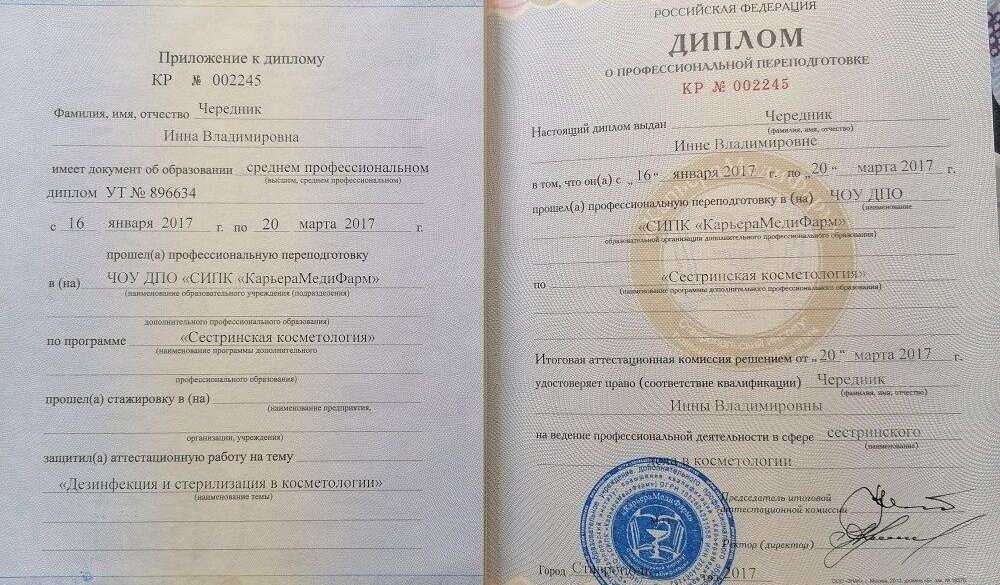 Приложение к диплому
КР № 002245
Фамилия, имя, отчество Чередник
Инна Владимировна
имеет документ об образовании среднем профессиональном
(высшем, среднем профессиональном)
диплом УТ № 896634
с 16 января 2017 г. по 20 марта 2017 г.
прошел(а) профессиональную переподготовку
в (на) ЧОУ ДПО «СИПК «КарьераМедиФарм»
(наименование образовательного учреждения (подразделения)
дополнительного профессионального образования)
по программе «Сестринская косметология»
(наименование программы дополнительного
профессионального образования)
прошел(а) стажировку в (на)
(наименование предприятия,
организации, учреждения)
защитил(а) аттестационную работу на тему
«Дезинфекция и стерилизация в косметологии»
(наименование темы)
РОССИЙСКАЯ ФЕДЕРАЦИЯ
ДИПЛОМ
О ПРОФЕССИОНАЛЬНОЙ ПЕРЕПОДГОТОВКЕ
КР № 002245
Настоящий диплом выдан Чередник
(фамилия, имя, отчество)
Инне Владимировне
в том, что он(а) с „16“ января 2017 г. по „20“ марта 2017 г.
прошел(а) профессиональную переподготовку в (на) ЧОУ ДПО
(наименование
«СИПК «КарьераМедиФарм»
образовательной организации дополнительного профессионального образования)
по «Сестринская косметология»
(наименование программы дополнительного профессионального образования)
Итоговая аттестационная комиссия решением от „20“ марта 2017 г.
удостоверяет право (соответствие квалификации) Чередник
(фамилия, имя, отчество)
Инны Владимировны
на ведение профессиональной деятельности в сфере сестринского
(наименование)
дела в косметологии
Председатель итоговой
аттестационной комиссии
Ректор (директор)
«КарьераМедиФарм»
Город Ставрополь 2017